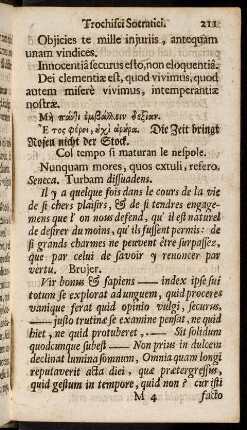 Trochisci Socratici. 211
Objicies te mille injuriis, antequam
unam vindices.
Innocentiâ securus esto, non eloquentiâ.
Dei clementiæ est, quod vivimus, quod
autem miserè vivimus, intemperantiæ
nostræ.
Μὴ παντὶ ἐμβάλλειν δεξιάν.
Ἔτος φέρει, ἐχὶ ἄρυρα. Die Zeit bringt
Rosen nicht der Stock.
Col tempo si maturan le nespole.
Nunquam mores, quos extuli, refero.
Seneca. Turbam dissuadens.
Il y a quelque fois dans le cours de la vie
de si chers plaisirs, & de si tendres engage-
mens que l'on nous defend, qu'il est naturel
de desirer du moins, qu'ils fussent permis: de
si grands charmes ne peuvent être surpassez,
que par celui de savoir y renoncer par
vertu. Brujer.
Vir bonus & sapiens — index ipse sui
totum se explorat ad unguem, quid proceres
vanique ferat quid opinio vulgi, securus,
— justo trutinæ se examine pensat, ne quid
hiet, ne quid protuberet, — Sit solidum
quodcunque subest — Non prius in dulcem
declinat lumina somnum, Omnia quam longi
reputaverit acta diei, quæ prætergressus,
quid gestum in tempore, quid non? cur isti
M 4 facto